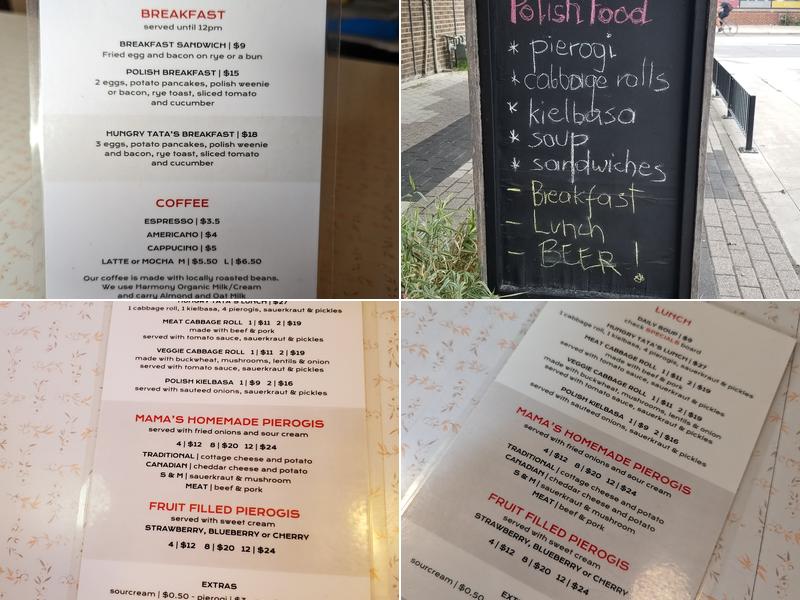 BREAKFAST
served until 12pm
BREAKFAST SANDWICH | $9
Fried egg and bacon on rye or a bun
POLISH BREAKFAST | $15
2 eggs, potato pancakes, polish weenie
or bacon, rye toast, sliced tomato
and cucumber
HUNGRY TATA'S BREAKFAST | $18
3 eggs, potato pancakes, polish weenie
and bacon, rye toast, sliced tomato
and cucumber
COFFEE
ESPRESSO | $3.5
AMERICANO | $4
CAPPUCINO | $5
LATTE or MOCHA M | $5.50 L | $6.50
Our coffee is made with locally roasted beans.
We use Harmony Organic Milk/Cream
and carry Almond and Oat Milk
Polish Food
* pierogi
* cabbage rolls
* kielbasa
* soup
* sandwiches
- Breakfast
- Lunch
- BEER!
HUNGRY TATA'S LUNCH | $27
1 cabbage roll, 1 kielbasa, 4 pierogis, sauerkraut & pickles
MEAT CABBAGE ROLL 1 | $11 2 | $19
made with beef & pork
served with tomato sauce, sauerkraut & pickles
VEGGIE CABBAGE ROLL 1 | $11 2 | $19
made with buckwheat, mushrooms, lentils & onion
served with tomato sauce, sauerkraut & pickles
POLISH KIELBASA 1 | $9 2 | $16
served with sauteed onions, sauerkraut & pickles
MAMA'S HOMEMADE PIEROGIS
served with fried onions and sour cream
4 | $12 8 | $20 12 | $24
TRADITIONAL | cottage cheese and potato
CANADIAN | cheddar cheese and potato
S & M | sauerkraut & mushroom
MEAT | beef & pork
FRUIT FILLED PIEROGIS
served with sweet cream
STRAWBERRY, BLUEBERRY or CHERRY
4 | $12 8 | $20 12 | $24
EXTRAS
sourcream | $0.50 - pierogi | $3
LUNCH
DAILY SOUP | $9
check SPECIALS board
HUNGRY TATA'S LUNCH | $27
1 cabbage roll, 1 kielbasa, 4 pierogis, sauerkraut & pickles
MEAT CABBAGE ROLL 1 | $11 2 | $19
made with beef & pork
served with tomato sauce, sauerkraut & pickles
VEGGIE CABBAGE ROLL 1 | $11 2 | $19
made with buckwheat, mushrooms, lentils & onion
served with tomato sauce, sauerkraut & pickles
POLISH KIELBASA 1 | $9 2 | $16
served with sauteed onions, sauerkraut & pickles
MAMA'S HOMEMADE PIEROGIS
served with fried onions and sour cream
4 | $12 8 | $20 12 | $24
TRADITIONAL | cottage cheese and potato
CANADIAN | cheddar cheese and potato
S & M | sauerkraut & mushroom
MEAT | beef & pork
FRUIT FILLED PIEROGIS
served with sweet cream
STRAWBERRY, BLUEBERRY or CHERRY
4 | $12 8 | $20 12 | $24
sourcream | $0.50